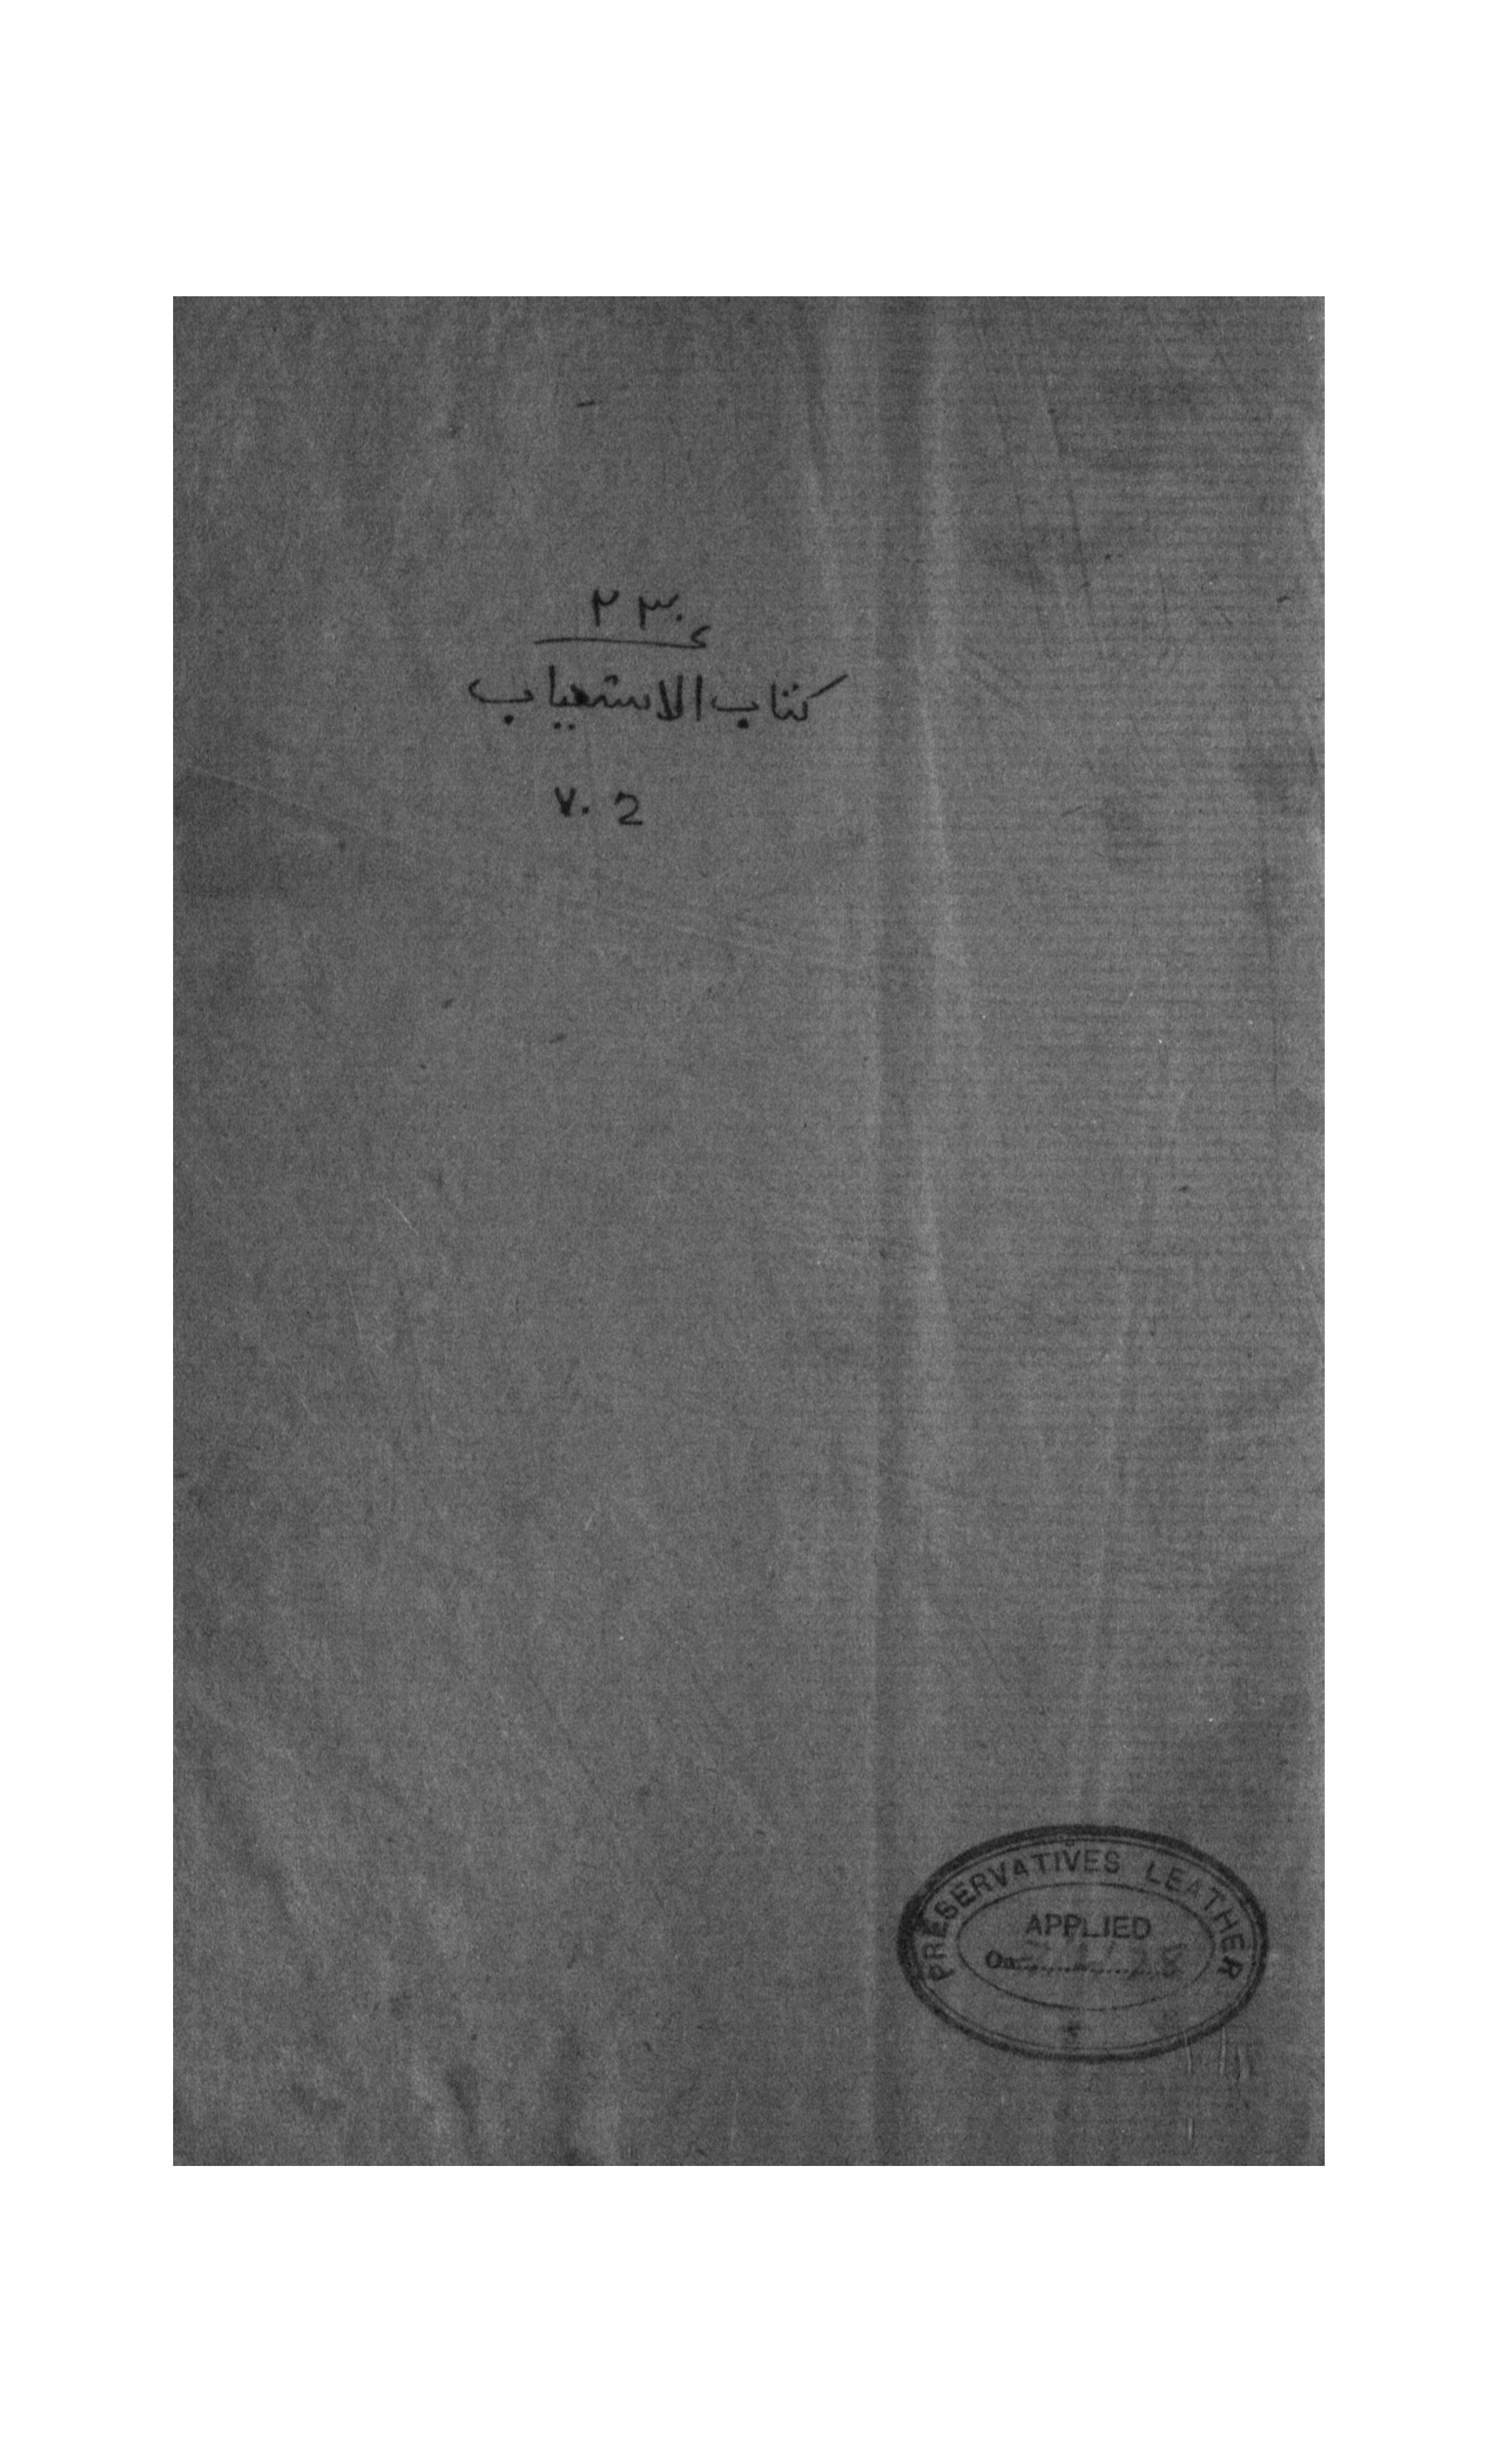 ٢٣٠
كتاب الاستيعاب
V. 2
PRESERVATIVES LEATHER
APPLIED
On